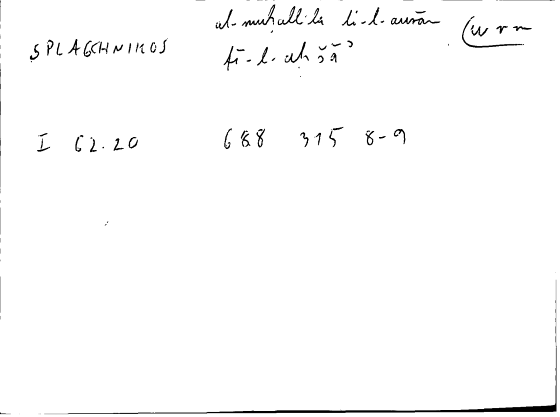 al-muḥallila li-l-aurām (wrm
SPLAGCHNIKOS fī-l-aḥšāʾ
I 62.20 688 315 8-9